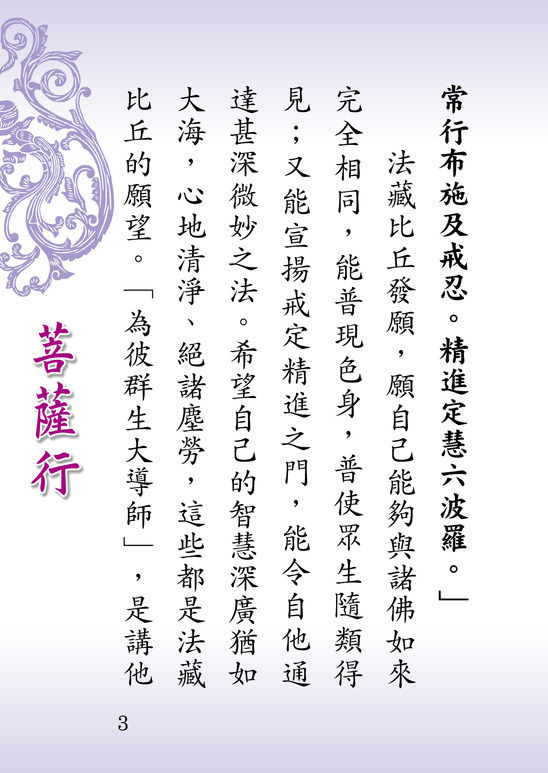 常行布施及戒忍。精進定慧六波羅。」
法藏比丘發願，願自己能夠與諸佛如來
完全相同，能普現色身，普使眾生隨類得
見；又能宣揚戒定精進之門，能令自他通
達甚深微妙之法。希望自己的智慧深廣猶如
大海，心地清淨、絕諸塵勞，這些都是法藏
比丘的願望。「為彼群生大導師」，是講他
菩薩行
3